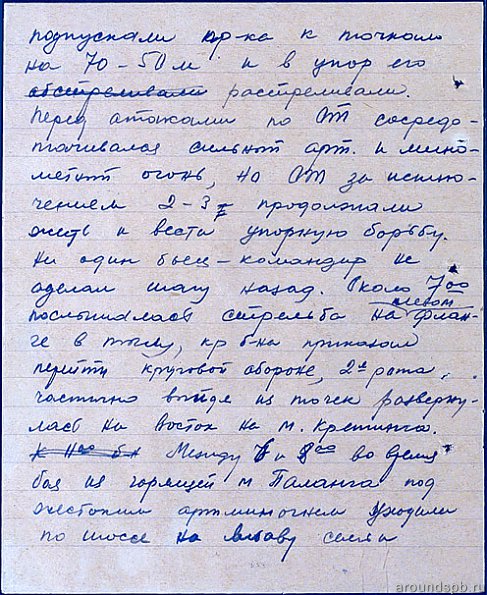 подпускали пр-ка к точкам
на 70-50 м и в упор его
обстреливали расстреливали.
Перед атаками по ОТ сосредо-
тачивался сильный арт. и мино-
метный огонь, но ОТ за исклю-
чением 2-3х продолжали
жить и вести упорную борьбу.
Ни один боец-командир не
сделал шагу назад. Около 7⁰⁰
послышалась стрельба на левом флан-
ге в тылу, к-р б-на приказал
перейти круговой обороне, 2я рота,
частично выйдя из точек разверну-
лась на восток на м. Кретинга.
Между 7 и 8⁰⁰ во время
боя из горящей м Паланга под
жестоким артминогнем уходили
по шоссе на Либаву семьи
aroundspb.ru